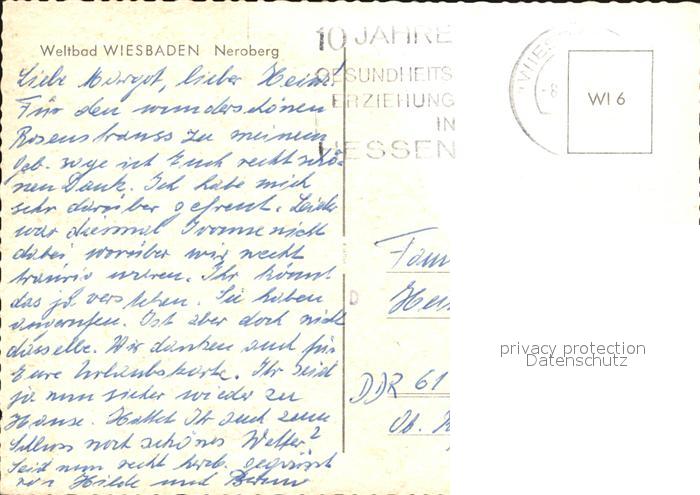 Weltbad WIESBADEN Neroberg
10 JAHRE
GESUNDHEITS
ERZIEHUNG
IN
HESSEN
WI 6
Liebe Margot, lieber Heinz!
Für den wunderschönen
Rosenstrauss zu meinem
Geb. sage ich Euch recht schö-
nen Dank. Ich habe mich
sehr darüber gefreut. Leider
war diesmal Ivonne nicht
dabei worüber wir recht
traurig waren. Ihr könnt
das ja verstehen. Sie haben
angerufen. Ist aber doch nicht
dasselbe. Wir danken auch für
Eure Urlaubskarte. Ihr seid
ja nun sicher wieder zu
Hause. Hattet Ihr auch zum
Schluss noch schönes Wetter?
Seid nun recht herzl. gegrüsst
von Hilde und
Fam
DDR 61
privacy protection
Datenschutz